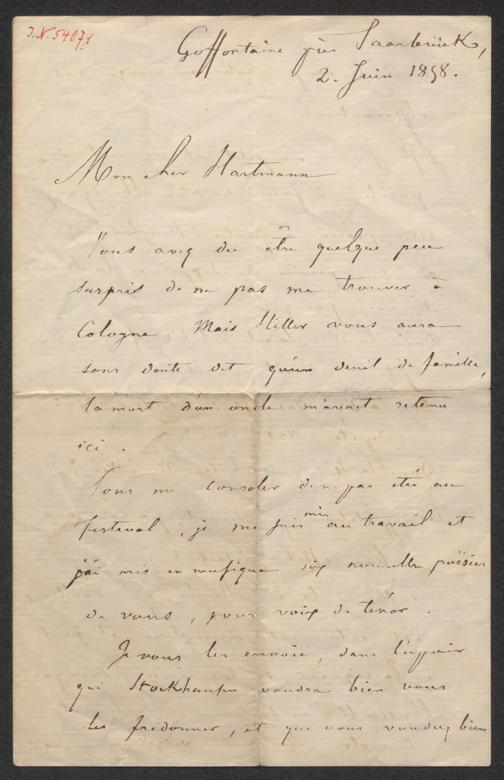 J.N. 54071
Goffontaine près Saarbrück,
2. Juin 1858.
Mon cher Hartmann
Vous avez du être quelque peu
surpris de ne pas me trouver à
Cologne. Mais Hiller vous aura
sans doute dit qu'un deuil de famille,
la mort d'un oncle m'avait retenu
ici.
Pour me consoler de n'pas été au
festival, je me suis mis au travail et
j'ai mis en musique six nouvelles poësies
de vous, pour voix de ténor.
Je vous les envoie, dans l'espoir
que Stockhausen voudra bien vous
les fredonner, et que vous voudrez bien